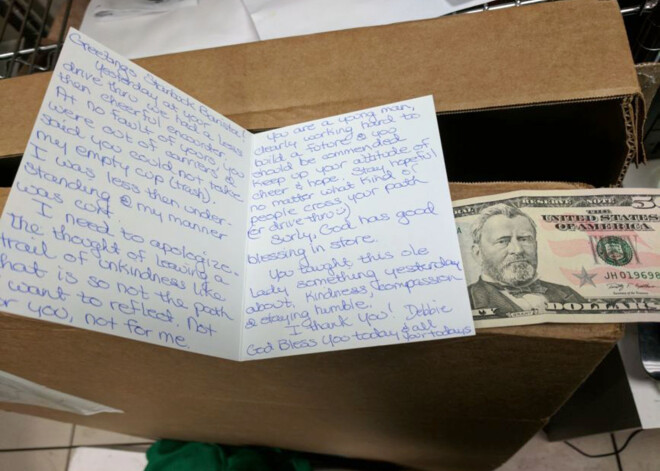 Greetings Starbuck Barista!
Yesterday at your
drive thru we had a less
then cheerful encounter.
At no fault of yours, you
were out of carriers &
said you could not take
my empty cup (trash).
I was less then under-
standing & my manner
was curt.
I need to apologize.
The thought of leaving a
trail of unkindness like
that is so not the path
I want to reflect. Not
for you, not for me.
You are a young man,
clearly working hard to
build a future & you
should be commended.
Keep up your attitude of
cheer & hope. Stay hopeful
no matter what kind of
people cross your path
(er drive thru)
Surly, God has good
blessing in store.
You taught this ole
lady something yesterday
about, kindness, compassion
& staying humble.
I thank you! Debbie
God Bless You today & all
your todays
RESERVE NOTE
UNITED STATES
OF AMERICA
JH019698
DOLLARS